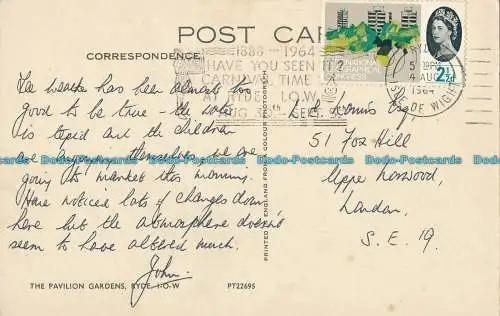 POST CARD
CORRESPONDENCE
1888 - 1964
HAVE YOU SEEN IT?
CARNIVAL TIME
AT RYDE I.O.W.
AUG. SEPT.
INTERNATIONAL
GEOGRAPHICAL
CONGRESS
2½d
RYDE
5 PM
4 AUG
1964
ISLE OF WIGHT
The weather has been almost too
good to be true - the water
is tepid and the children
are enjoying themselves. We are
going to market this morning.
Have noticed lots of changes down
here but the atmosphere doesn't
seem to have altered much.
John.
Esq
51 Fox Hill
Upper Norwood,
London,
S.E. 19.
PRINTED IN ENGLAND FROM COLOUR PHOTOGRAPH
THE PAVILION GARDENS, RYDE, I-O-W
PT22695
Dodo-Postcards Dodo-Postcards Dodo-Postcards Dodo-Postcards Dodo-Postcards Dodo-Postcards